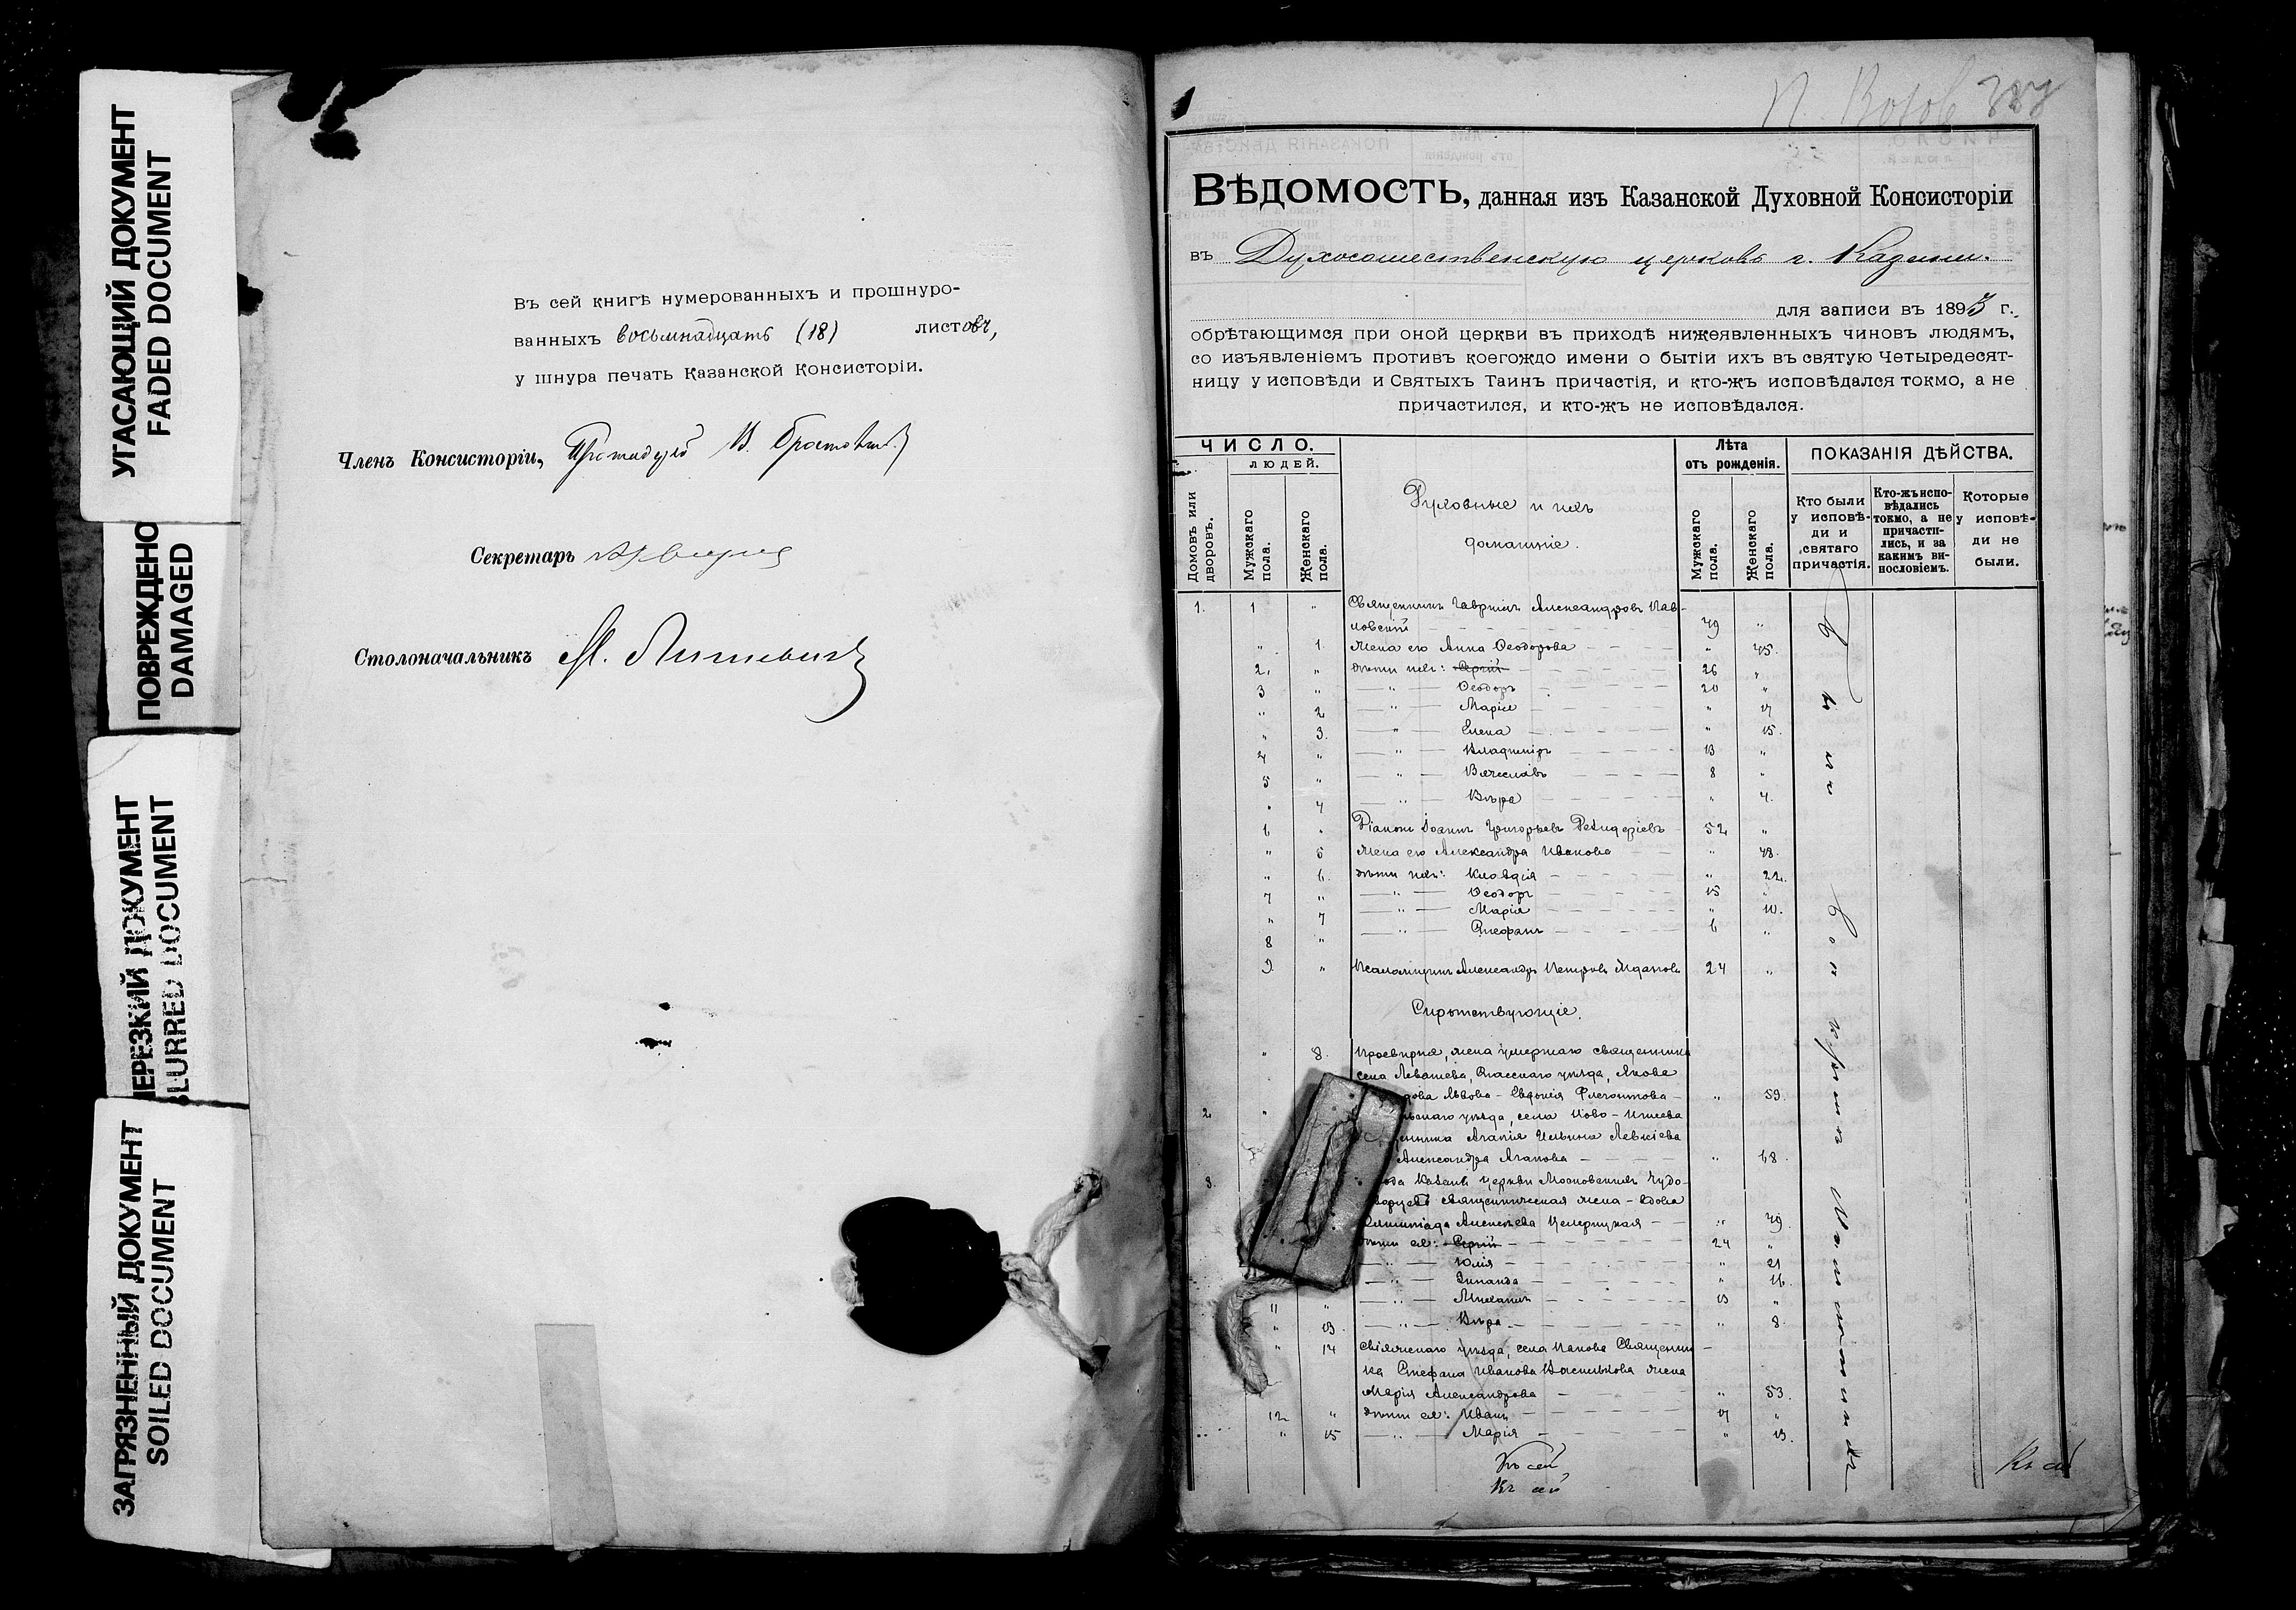 УГАСАЮЩИЙ ДОКУМЕНТ
FADED DOCUMENT
ПОВРЕЖДЕНО
DAMAGED
НЕРЕЗКИЙ ДОКУМЕНТ
BLURRED DOCUMENT
ЗАГРЯЗНЕННЫЙ ДОКУМЕНТ
SOILED DOCUMENT
Въ сей книгѣ нумерованныхъ и прошнуро-
ванныхъ восьмнадцать (18) листовъ,
у шнура печать Казанской Консисторіи.
Членъ Консисторіи, Протоіерей В.
Секретарь
Столоначальникъ
ВѢДОМОСТЬ, данная изъ Казанской Духовной Консисторіи
въ Духосошественскую церковь г. Казани.
для записи въ 1893 г.,
обрѣтающимся при оной церкви въ приходѣ нижеявленныхъ чиновъ людямъ,
со изъявленіемъ противъ коегождо имени о бытіи ихъ въ святую Четыредесят-
ницу у исповѣди и Святыхъ Таинъ причастія, и кто-жъ исповѣдался токмо, а не
причастился, и кто-жъ не исповѣдался.
ЧИСЛО.
людей.
Домовъ или дворовъ.
Мужскаго пола.
Женскаго пола.
Духовные и ихъ
домашніе.
Лѣта
отъ рожденія.
Мужскаго пола.
Женскаго пола.
ПОКАЗАНІЯ ДѢЙСТВА.
Кто были у исповѣ-ди и святаго причастія.
Кто-жъ испо-вѣдались токмо, а не причасти-лись, и за какимъ ви-нословіемъ.
Которые у исповѣ-ди не были.
1. 1 " Священникъ Гавріилъ Александровъ Пав-
ловскій 49 "
" 1. Жена его Анна Ѳеодорова " 45.
2. " дѣти ихъ: Сергій 26 "
3 " " Ѳеодоръ 20 "
" 2 " Марія " 17
" 3. " Елена " 15.
4 " " Владиміръ 13 "
5 " " Вячеславъ 8 "
" 4 " Вѣра " 4.
6 " Діаконъ Іоаннъ Григорьевъ 52 "
" 5 Жена его Александра Иванова " 48.
" 6. дѣти ихъ: Клавдія " 22.
7 " " Ѳеодоръ 15 "
" 7 " Марія " 10.
8 " " Стефанъ 6 "
9. " Псаломщикъ Александръ Петровъ 24 "
Сиротствующіе.
" 8. Просвирня, жена умершаго священника
села Левашева, Спасскаго уѣзда, Якова
Львова - Евдокія " 59.
2. " уѣзда, села Ново-
Агапія Ильина
Александра Агапова " 68.
3. церкви Московскихъ Чудо-
творцевъ священническая жена - вдова
Олимпіада Алексѣева " 49.
дѣти ея: Сергій 24 "
" Юлія " 21
" Зинаида " 16.
11 " " Михаилъ 13 "
" 13. " Вѣра " 8.
" 14 Свіяжскаго уѣзда, села священни-
ка Стефана Иванова жена
Марія Александрова " 53.
12 " дѣти ея: Иванъ 17 "
" 15 " Марія " 13.
Къ сей
Къ сей
Къ сей